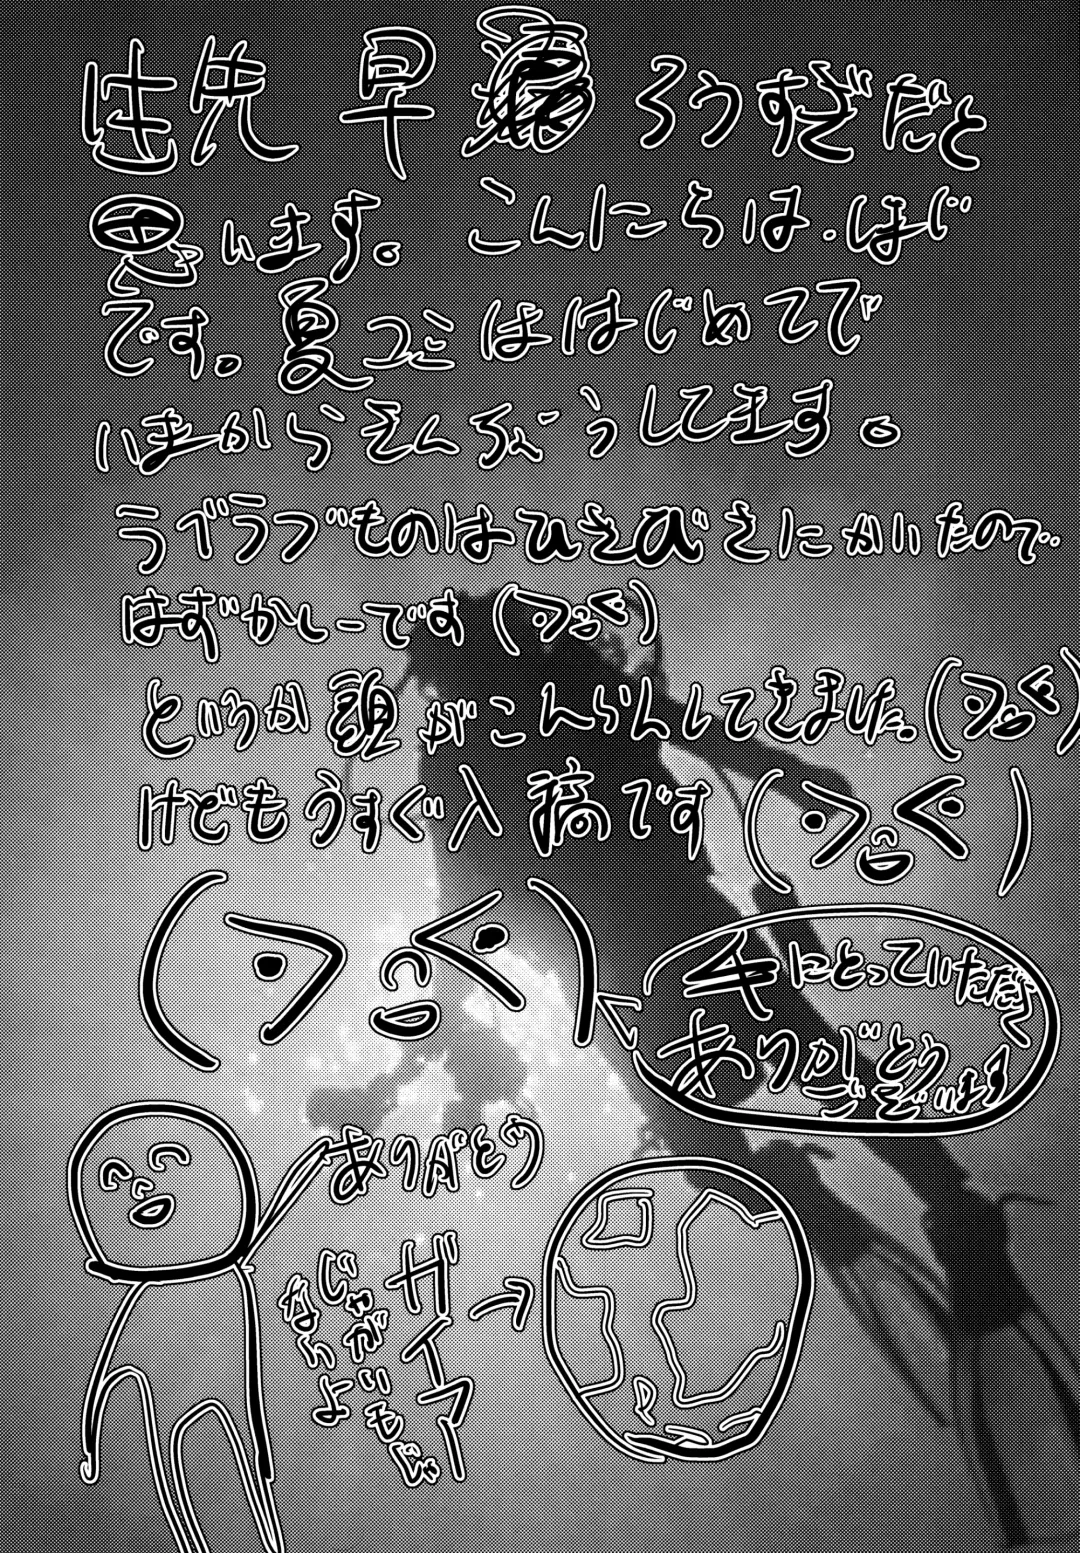 先 早 ろうすぎだと
思います。こんにちは.ほじ
です。夏コミははじめてで
いまからそんぶうしてます。
ラブラブものはひさびさにかいたので..
はずかしーです
というか頭がこんらんしてきました。
けどもうすぐ入稿です
手にとっていただき
ありがとう
ございます
ありがとう
ガイアー
じゃがいもじゃ
ないよ